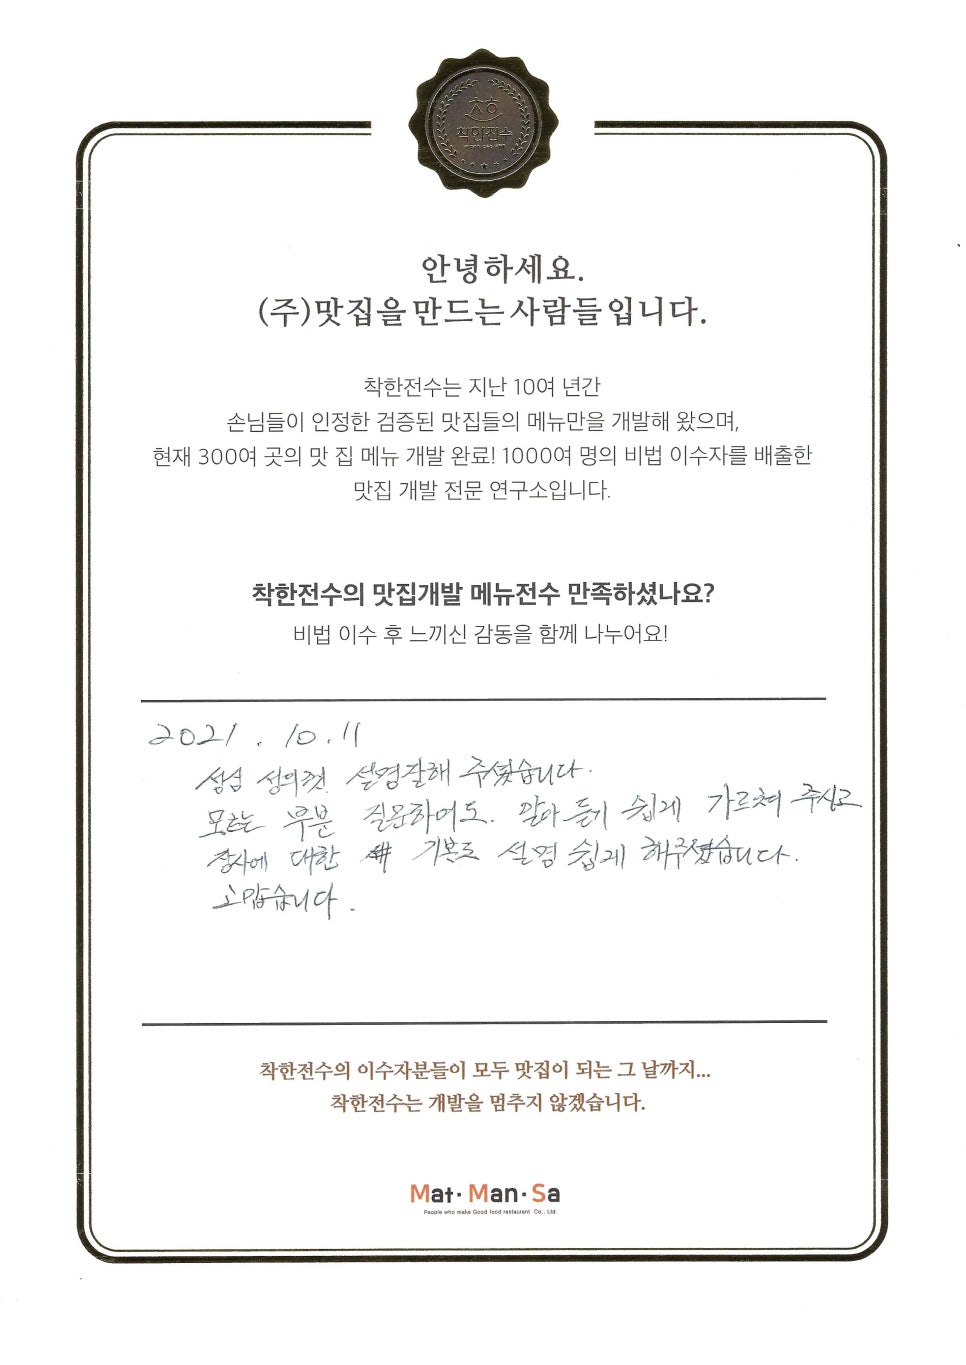 착한전수
안녕하세요.
(주)맛집을 만드는 사람들입니다.
착한전수는 지난 10여 년간
손님들이 인정한 검증된 맛집들의 메뉴만을 개발해 왔으며,
현재 300여 곳의 맛 집 메뉴 개발 완료! 1000여 명의 비법 이수자를 배출한
맛집 개발 전문 연구소입니다.
착한전수의 맛집개발 메뉴전수 만족하셨나요?
비법 이수 후 느끼신 감동을 함께 나누어요!
2021. 10. 11
성심 성의껏 설명잘해 주셨습니다.
모르는 부분 질문하여도. 알아 듣기 쉽게 가르쳐 주시고
장사에 대한 기본도 설명 쉽게 해주셨습니다.
고맙습니다.
착한전수의 이수자분들이 모두 맛집이 되는 그 날까지...
착한전수는 개발을 멈추지 않겠습니다.
Mat·Man·Sa
People who make Good food restaurant Co., Ltd.